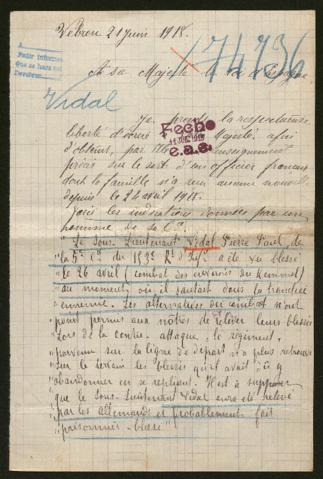 Vebron 21 juin 1918.
174736
A Sa Majesté le roi d'Espagne
Pedir informes
Vidal
Je prends la respectueuse
liberté d'écrire à Majesté afin
d'obtenir, par renseignement
précis sur le sort d'un officier français
dont la famille n'a reçu aucune nouvelle
depuis le 24 avril 1918.
Fecho
e.a.c.
Voici les indications données par un
homme de sa Cie.
"Le Sous-Lieutenant Vidal Pierre Paul, de
"la 5e Cie du 153e Rt d'Infie a été vu blessé
"le 26 avril (combat des environs du Kemmel)
"au moment où il sautait dans la tranchée
"ennemie. Les alternatives du combat n'ont
"point permis aux nôtres de relever leurs blessés
"lors de la contre-attaque, le régiment,
"parvenu sur la ligne de départ n'a plus retrouvé
"sur le terrain les blessés qu'il avait dû y
"abandonner en se repliant. Il est à supposer
"que le Sous-Lieutenant Vidal aura été relevé
"par les allemands et probablement fait
"prisonnier blessé"